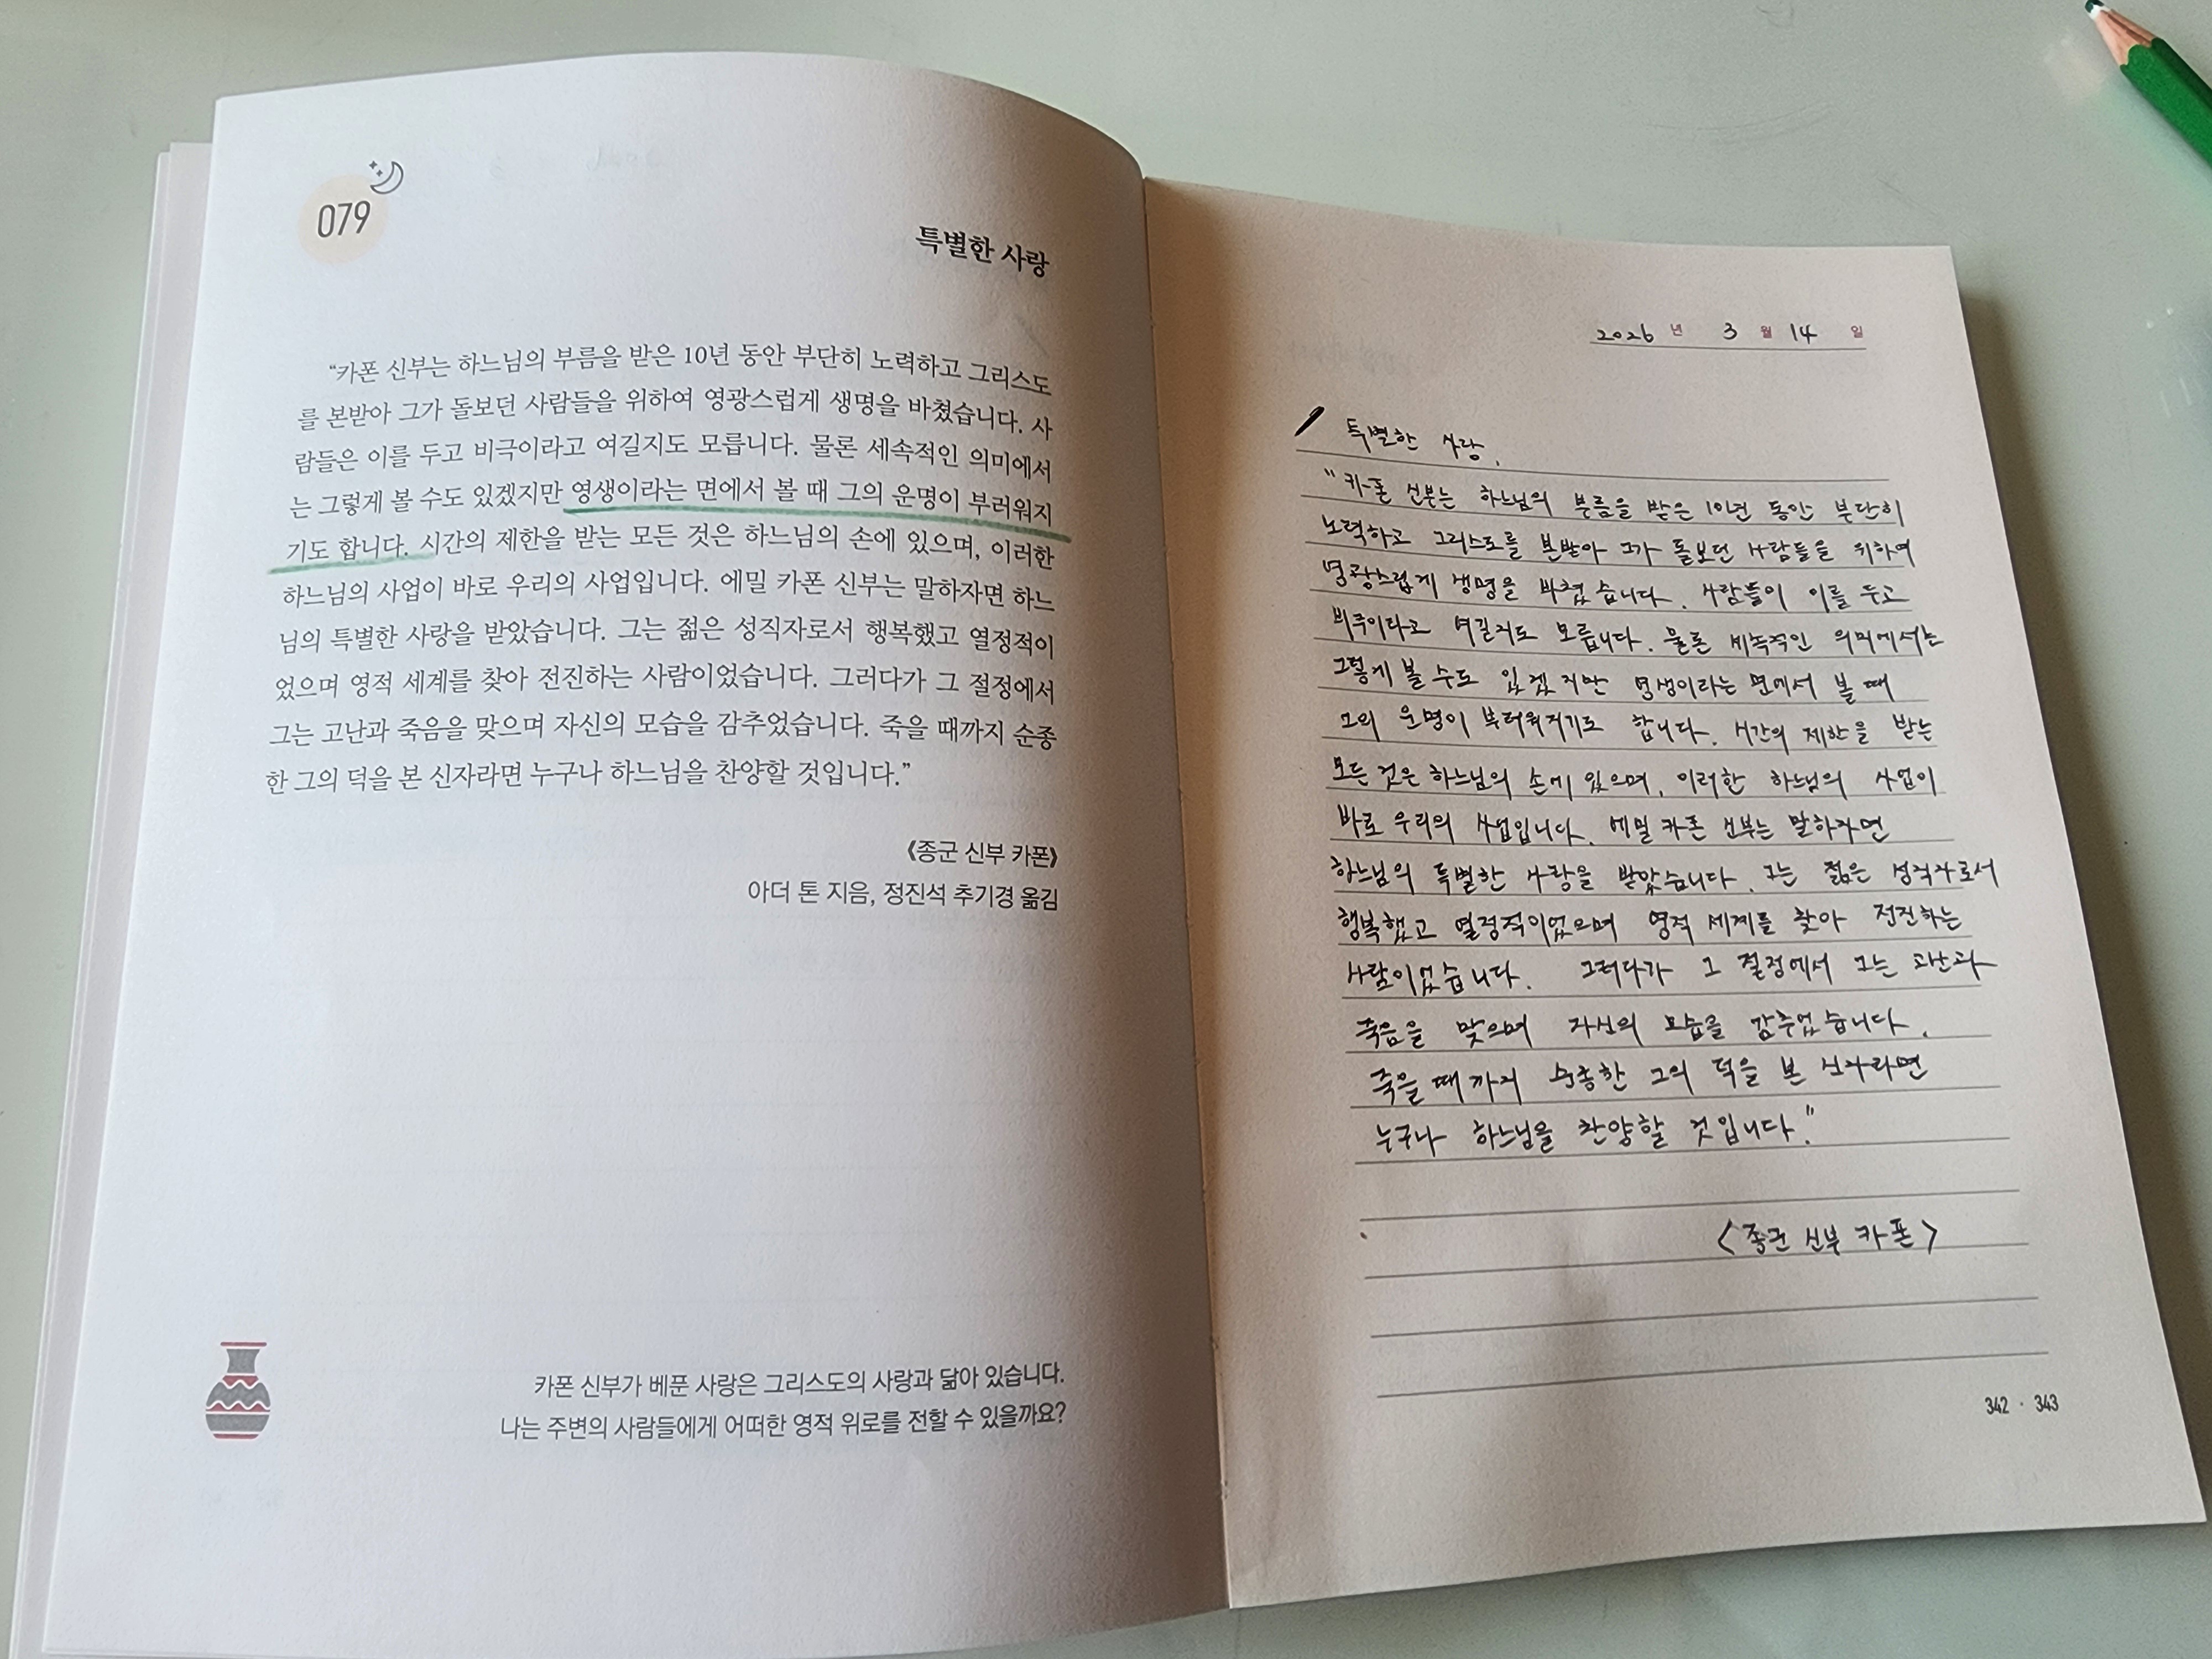 079
특별한 사랑
“카폰 신부는 하느님의 부름을 받은 10년 동안 부단히 노력하고 그리스도
를 본받아 그가 돌보던 사람들을 위하여 영광스럽게 생명을 바쳤습니다. 사
람들은 이를 두고 비극이라고 여길지도 모릅니다. 물론 세속적인 의미에서
는 그렇게 볼 수도 있겠지만 영생이라는 면에서 볼 때 그의 운명이 부러워지
기도 합니다. 시간의 제한을 받는 모든 것은 하느님의 손에 있으며, 이러한
하느님의 사업이 바로 우리의 사업입니다. 에밀 카폰 신부는 말하자면 하느
님의 특별한 사랑을 받았습니다. 그는 젊은 성직자로서 행복했고 열정적이
었으며 영적 세계를 찾아 전진하는 사람이었습니다. 그러다가 그 절정에서
그는 고난과 죽음을 맞으며 자신의 모습을 감추었습니다. 죽을 때까지 순종
한 그의 덕을 본 신자라면 누구나 하느님을 찬양할 것입니다.”
《종군 신부 카폰》
아더 톤 지음, 정진석 추기경 옮김
카폰 신부가 베푼 사랑은 그리스도의 사랑과 닮아 있습니다.
나는 주변의 사람들에게 어떠한 영적 위로를 전할 수 있을까요?
2026 년 3 월 14 일
특별한 사랑.
“카폰 신부는 하느님의 부름을 받은 10년 동안 부단히
노력하고 그리스도를 본받아 그가 돌보던 사람들을 위하여
영광스럽게 생명을 바쳤습니다. 사람들이 이를 두고
여길지도 모릅니다. 물론 세속적인 의미에서는
그렇게 볼 수도 있겠지만 영생이라는 면에서 볼 때
그의 운명이 부러워지기도 합니다. 시간의 제한을 받는
모든 것은 하느님의 손에 있으며, 이러한 하느님의 사업이
바로 우리의 사업입니다. 에밀 카폰 신부는 말하자면
하느님의 특별한 사랑을 받았습니다. 그는 젊은 성직자로서
행복했고 열정적이었으며 영적 세계를 찾아 전진하는
사람이었습니다. 그러다가 그 절정에서 그는 고난과
죽음을 맞으며 자신의 모습을 감추었습니다.
죽을 때까지 순종한 그의 덕을 본 신자라면
누구나 하느님을 찬양할 것입니다.”
<종군 신부 카폰>
342 · 343